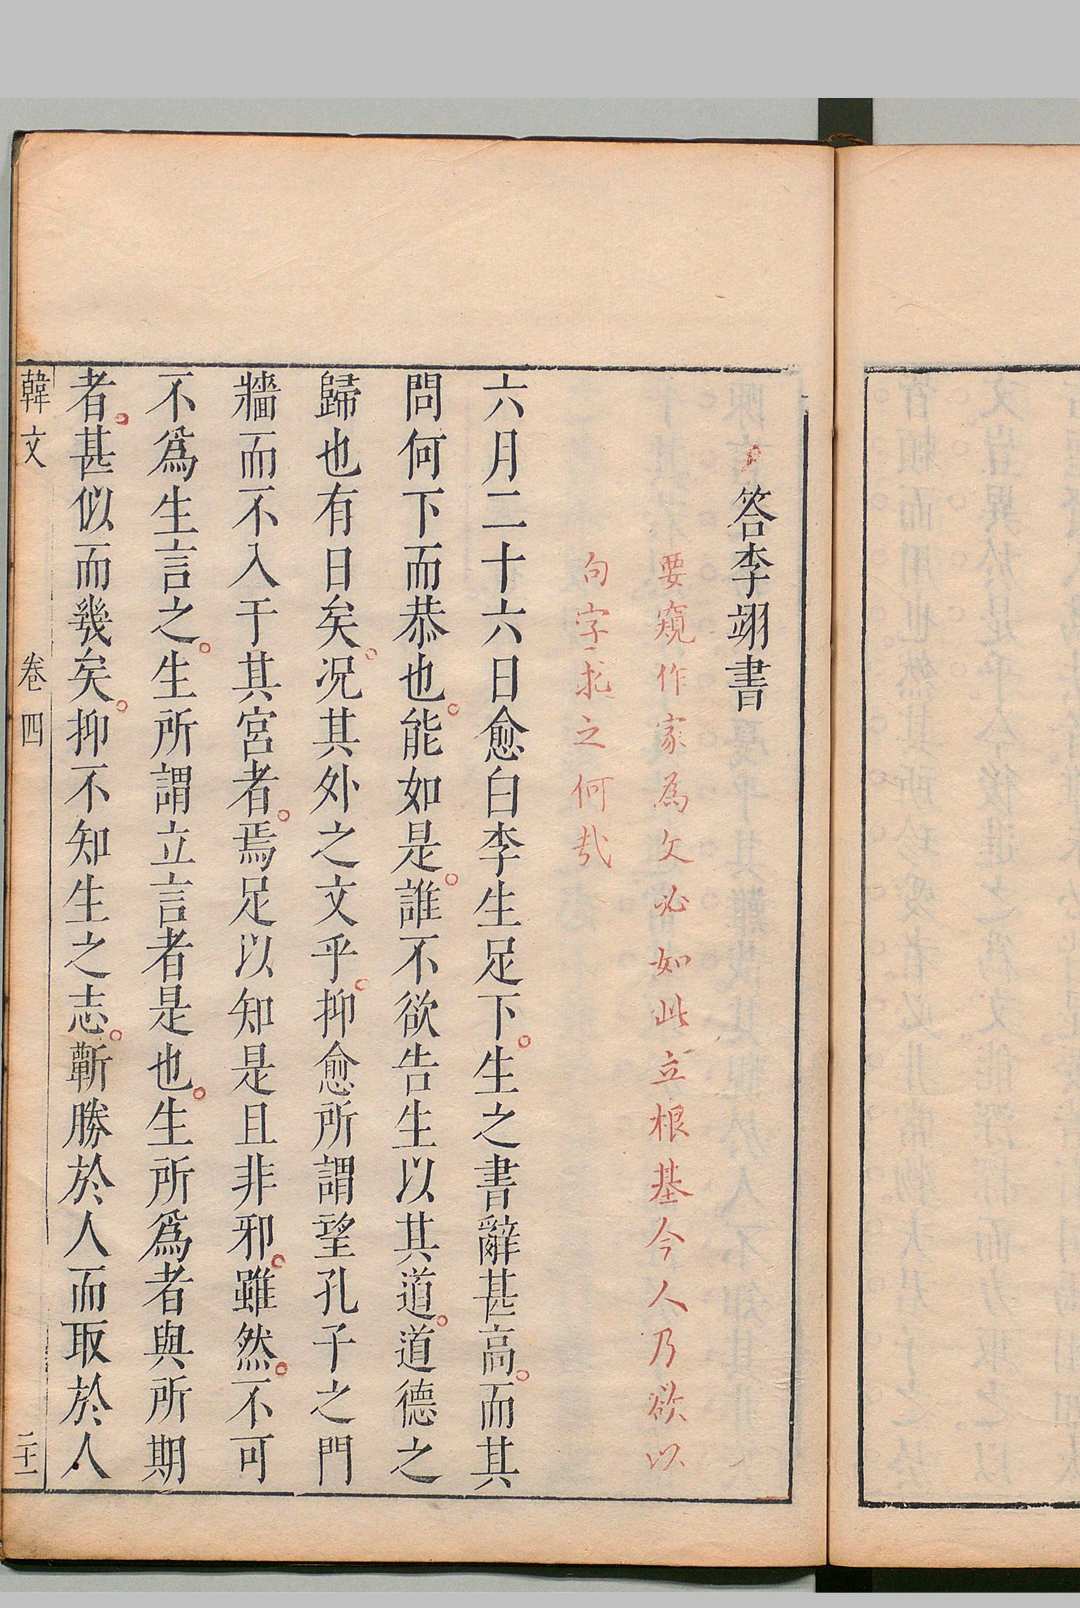 答李翊書
要窺作家為文必如此立根基今人乃欲以
句字求之何哉
六月二十六日愈白李生足下。生之書辭甚高。而其
問何下而恭也。能如是。誰不欲告生以其道。道德之
歸也有日矣。况其外之文乎。抑愈所謂望孔子之門
牆而不入于其宮者。焉足以知是且非邪。雖然。不可
不爲生言之。生所謂立言者是也。生所爲者與所期
者。甚似而幾矣。抑不知生之志。蘄勝於人而取於人
韓文 卷四 二十一